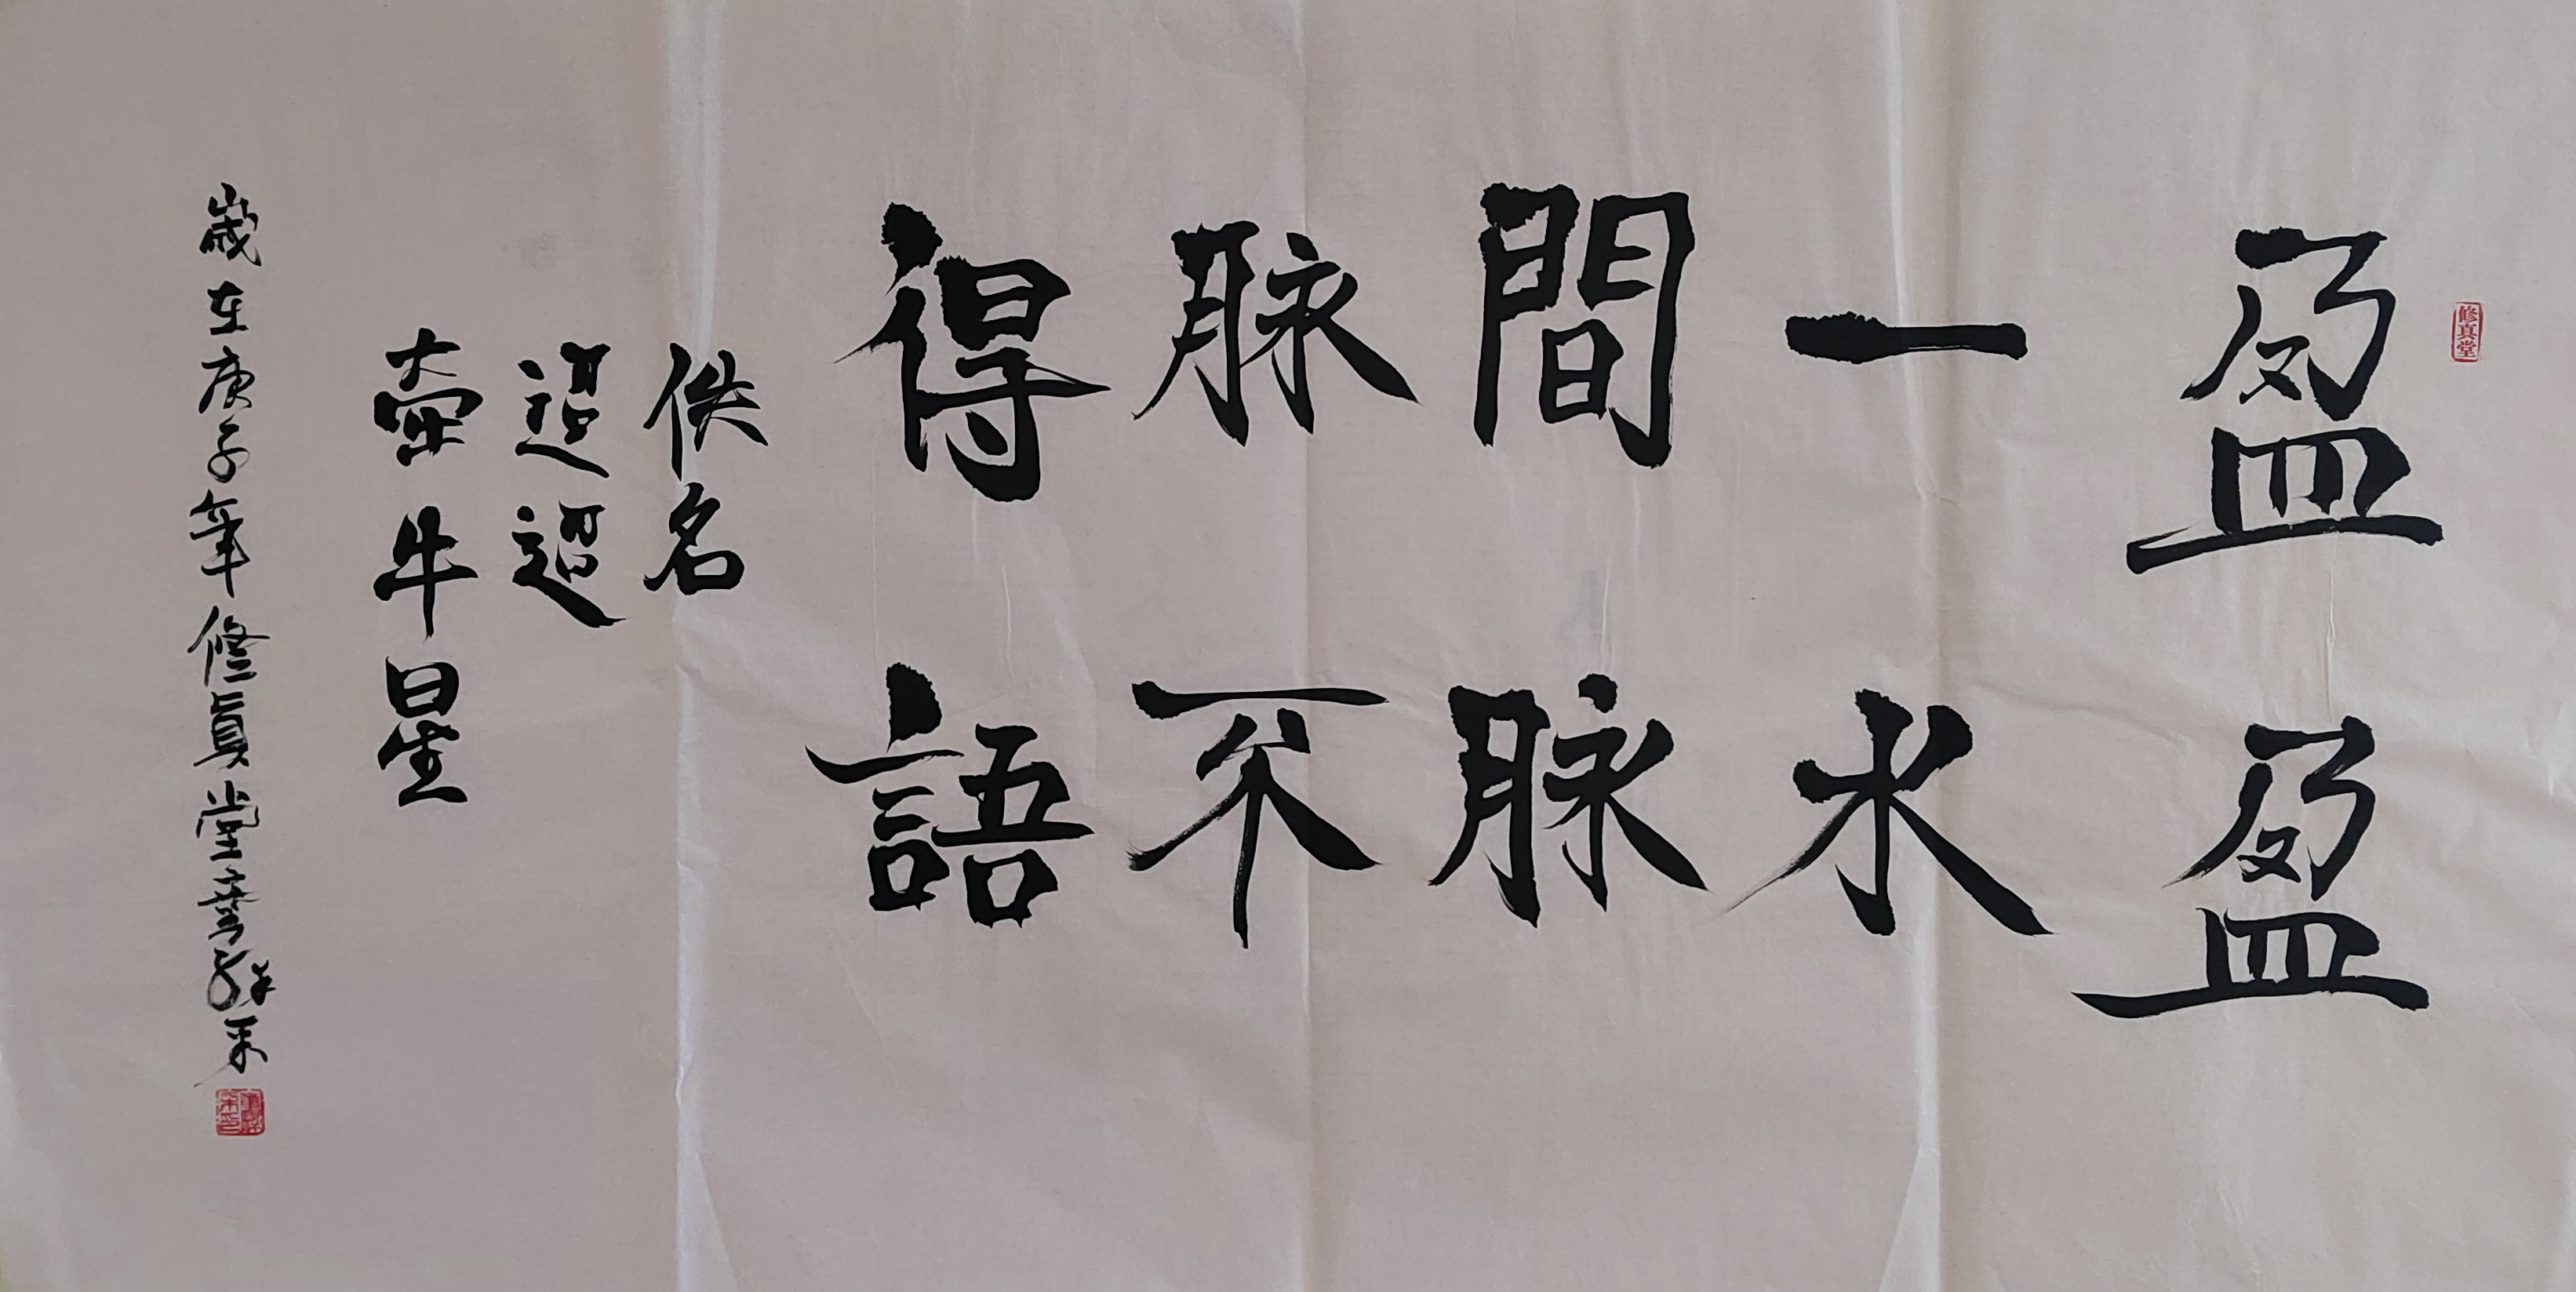 修真堂
盈盈
一水
間脉
脉不
得語
佚名
迢迢
牽牛星
歲在庚子年修眞堂